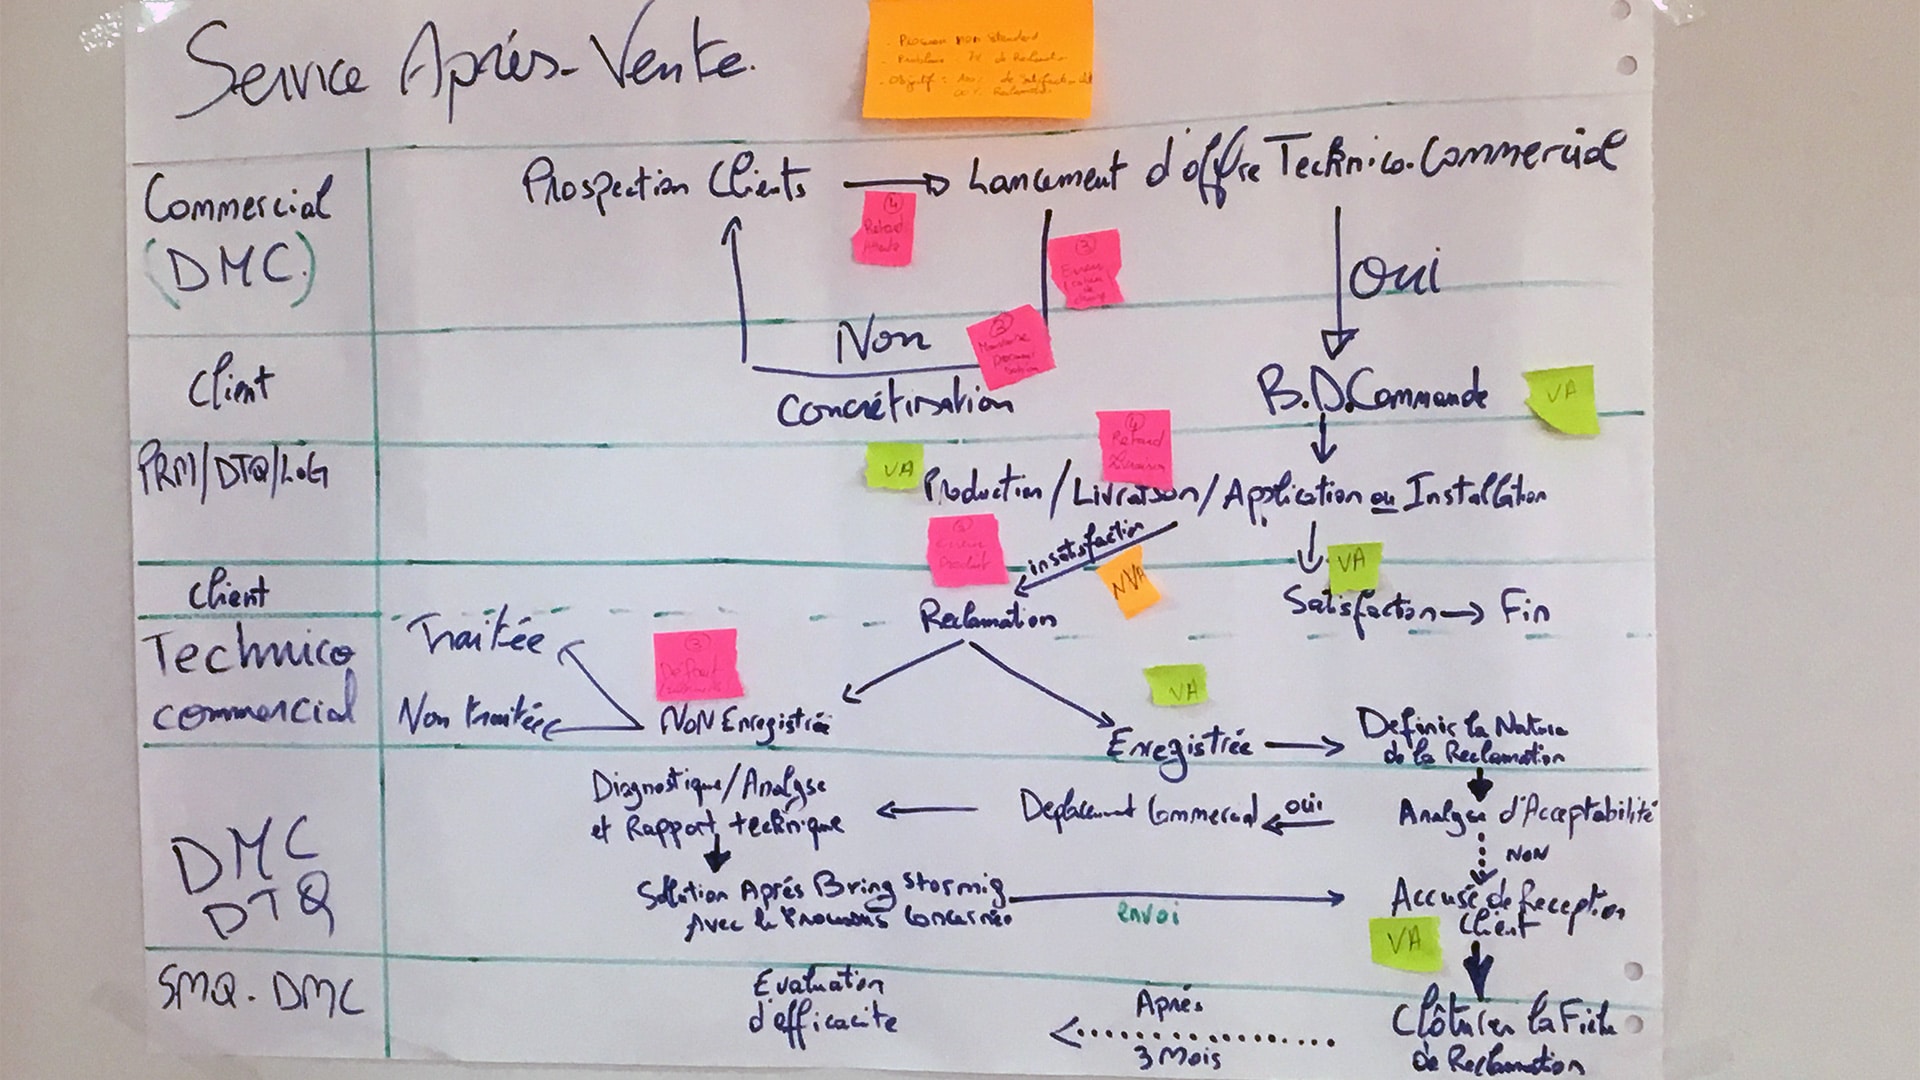 Service Après-Vente.
Problème
de Reclamation
Objectif : 100% de Satisfaction
Reclamation
Commercial
(DMC)
Prospection Clients
Lancement d'offre Technico-Commercial
④
Retard
③
Erreur
②
Mauvaise
Oui
Client
Non
Concrétisation
B.D.Commande
VA
PRM/DTQ/LOG
VA
④
Retard
Livraison
Production/Livraison/Application ou Installation
Produit
insatisfaction
NVA
VA
Client
Reclamation
Satisfaction
Fin
Technico
commercial
Traitée
Non traitée
③
Défaut
NON Enregistrée
VA
Enregistrée
Definir la Nature
de la Reclamation
DMC
DTQ
Diagnostique/Analyse
et Rapport technique
Deplacement Commercial
oui
Analyse d'Acceptabilité
NON
Solution Aprés Bring Stormig
Avec le Processus Concernée
envoi
Accusé de Reception
Client
VA
SMQ. DMC
Evaluation
d'efficacite
Aprés
3 Mois
Clôturer la Fiche
de Reclamation